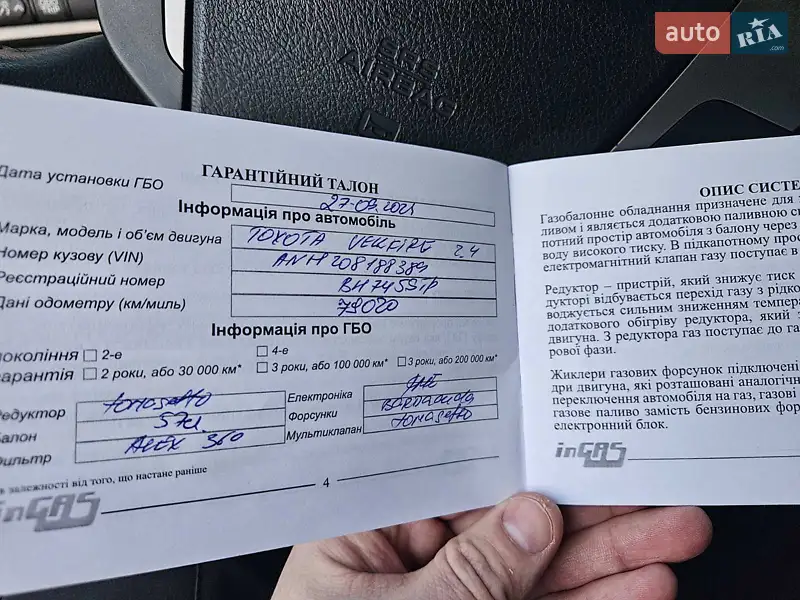 auto RIA.com
SRS
AIRBAG
Дата установки ГБО
ГАРАНТІЙНИЙ ТАЛОН
27-09.2021
Інформація про автомобіль
Марка, модель і об'єм двигуна TOYOTA VELLFIRE 2.4
Номер кузову (VIN) ANH208188389
Реєстраційний номер BH7455IP
Дані одометру (км/миль) 79020
Інформація про ГБО
покоління 2-е 4-е
гарантія 2 роки, або 30 000 км* 3 роки, або 100 000 км* 3 роки, або 200 000 км*
Редуктор tomasetto Електроніка
Балон 57л Форсунки
Фильтр ALEX 360 Мультиклапан tomasetto
в залежності від того, що настане раніше
inGAS
4
ОПИС СИСТЕ
Газобалонне обладнання призначене для
ливом і являється додатковою паливною си
потний простір автомобіля з балону через
воду високого тиску. В підкапотному прос
електромагнітний клапан газу поступає в
Редуктор – пристрій, який знижує тиск
дукторі відбувається перехід газу з рідко
воджується сильним зниженням темпера
додаткового обігріву редуктора, який з
двигуна. З редуктора газ поступає до га
рової фази.
Жиклери газових форсунок підключені
ри двигуна, які розташовані аналогічн
переключення автомобіля на газ, газові
газове паливо замість бензинових фор
електронний блок.
inGAS